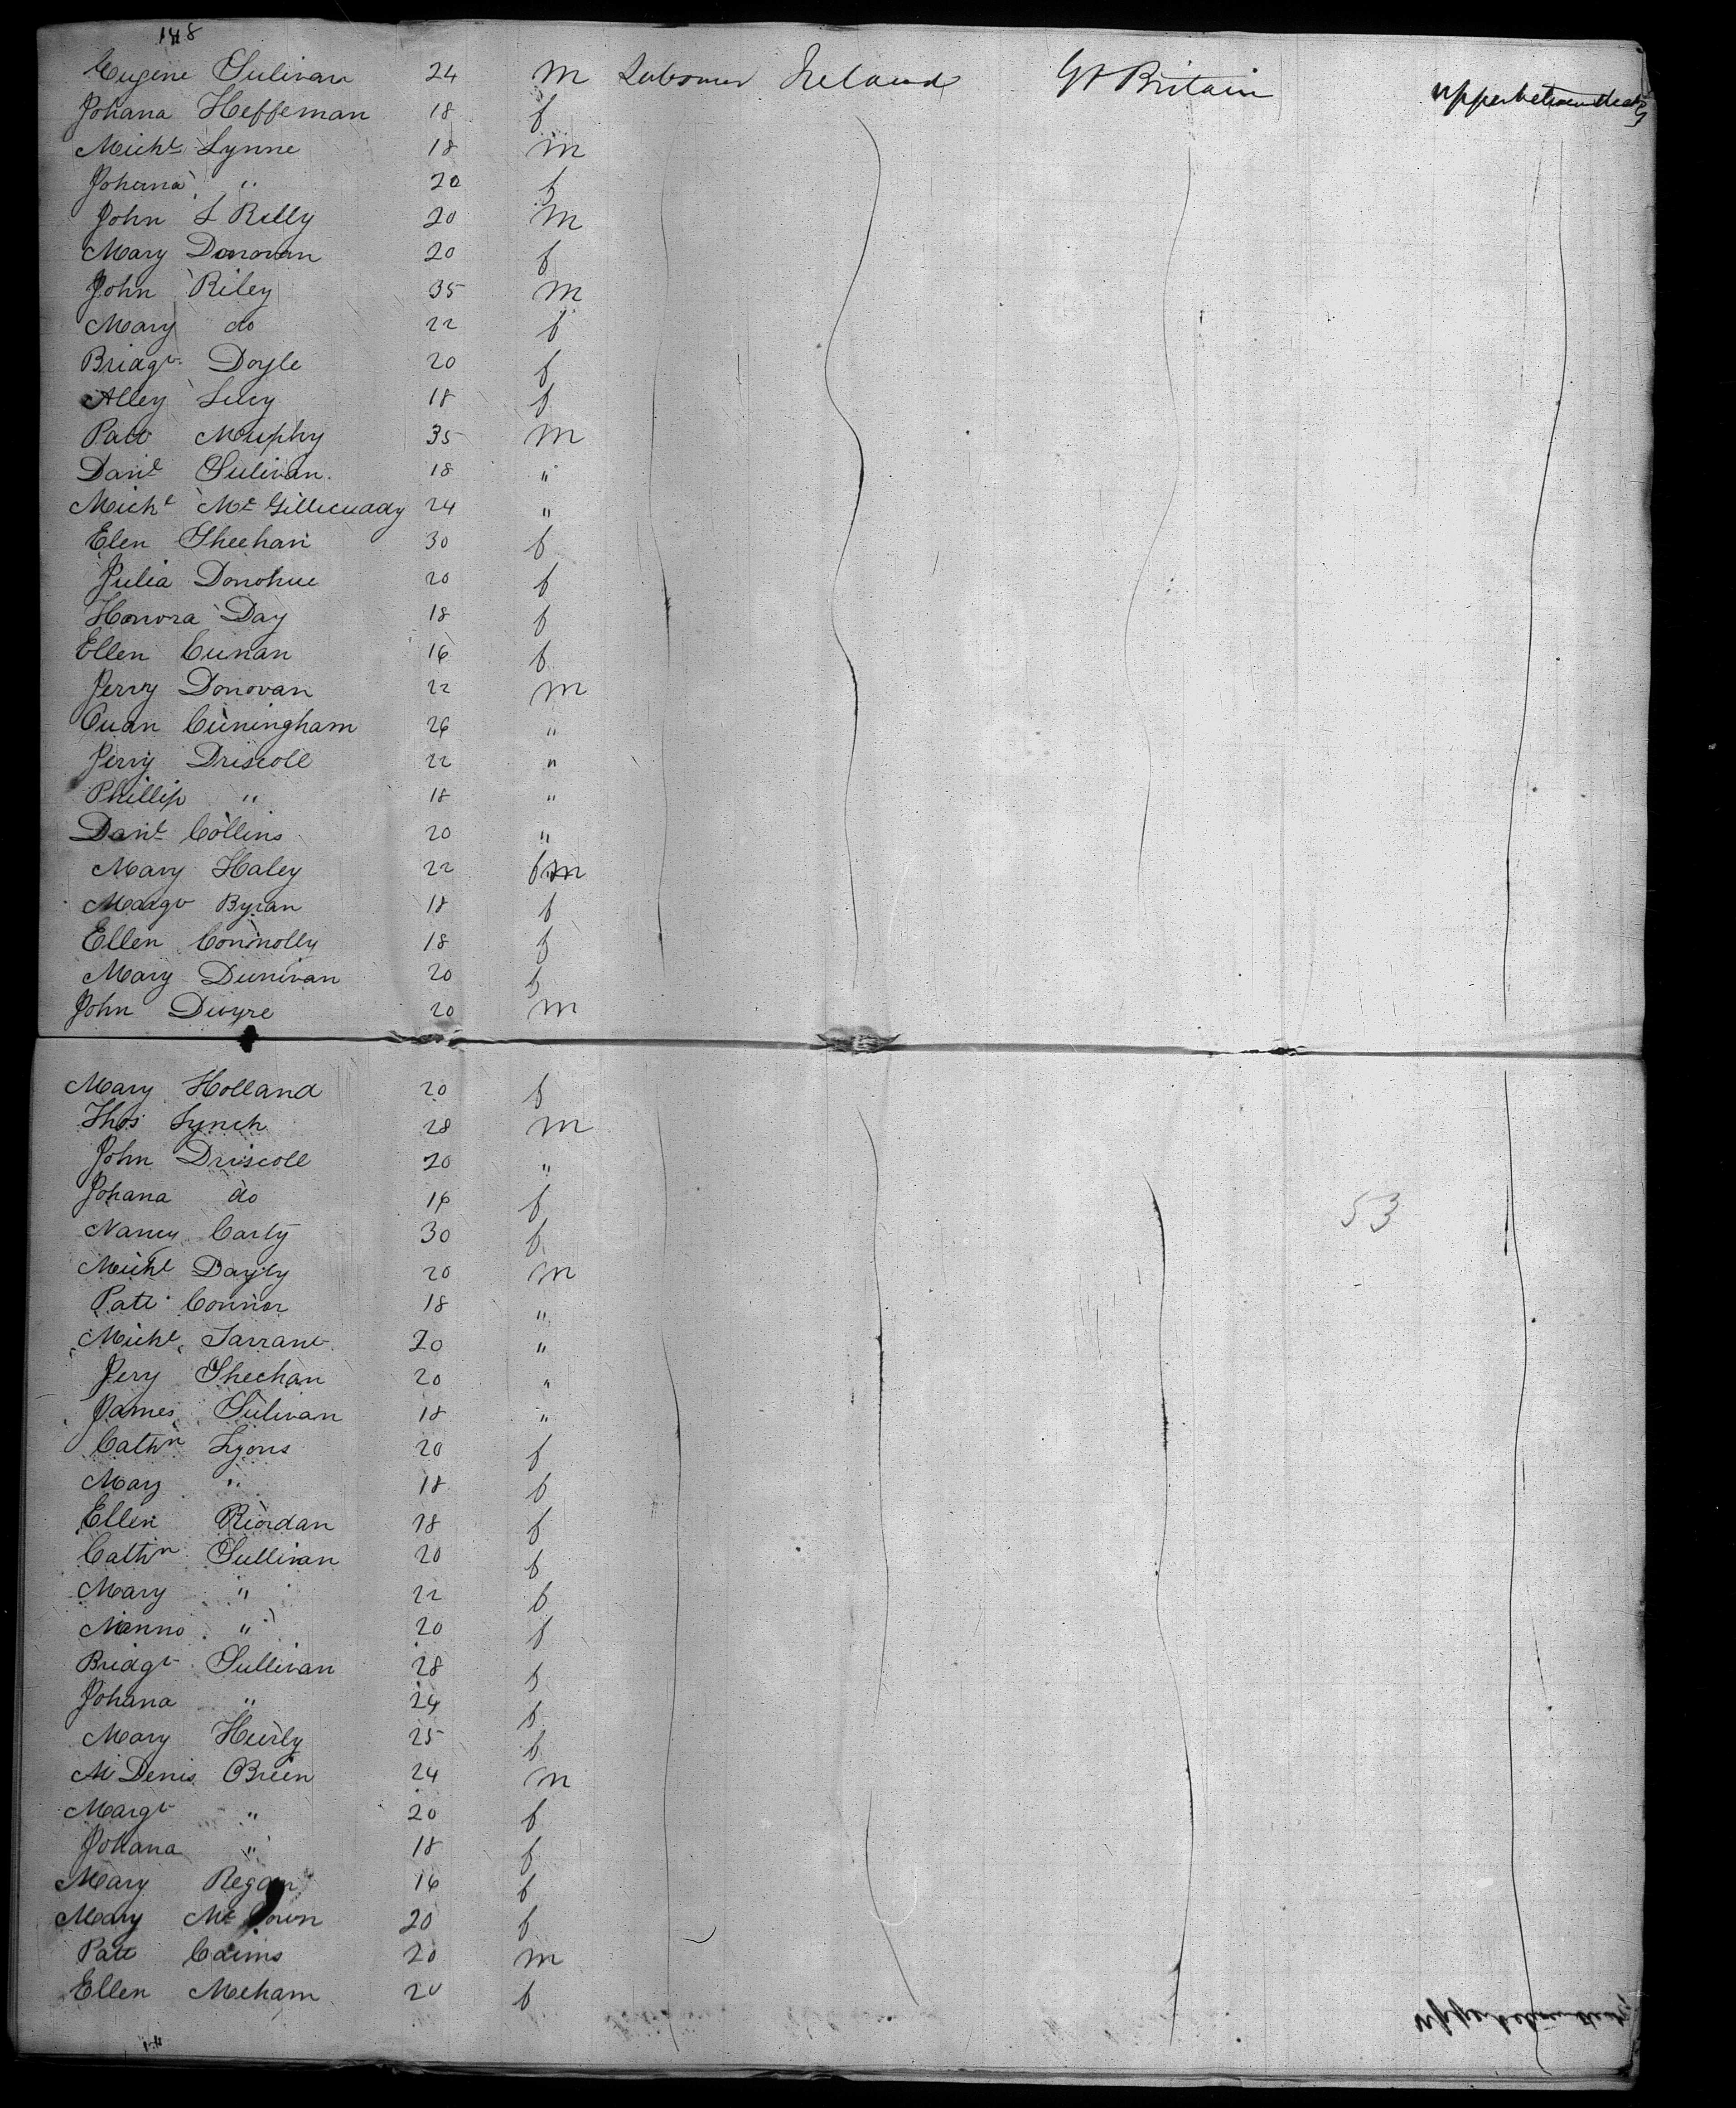 148
Eugene Sulivan 24 m Labourer Ireland Gt Britain Upper between decks
Johana Heffernan 18 f
Michl Lynne 18 m
Johana " 20 f
John L Relly 20 m
Mary Donovan 20 f
John Riley 35 m
Mary do 22 f
Bridgt Doyle 20 f
Alley Lucy 18 f
Patt Murphy 35 m
Danl Sulivan. 18 "
Michl Mc Gillicuddy 24 "
Elen Sheehan 30 f
Julia Donohue 20 f
Honora Day 18 f
Ellen Cunan 16 f
Jerry Donovan 22 m
Cuningham 26 "
Jerry Driscoll 22 "
Phillip " 18 "
Danl Collins 20 "
Mary Haley 22 f
Margt Byran 18 f
Ellen Connolly 18 f
Mary Dunivan 20 f
John Dwyre 20 m
Mary Holland 20 f
Thos Lynch 28 m
John Driscoll 20 "
Johana do 16 f
Nancy Carty 30 f
53
Michl Dayly 20 m
Patt Connor 18 "
Michl Tarrant 20 "
Jery Sheehan 20 "
James Sulivan 18 "
Cathn Lyons 20 f
Mary " 18 f
Ellen Riordan 18 f
Cathn Sullivan 20 f
Mary " 22 f
" 20 f
Bridgt Sullivan 28 f
Johana " 24 f
Mary Hurly 25 f
Denis OBrien 24 m
Margt " 20 f
Johana " 18 f
Mary Regan 16 f
Mary Mc 20 f
Patt Cairns 20 m
Ellen Meham 20 f